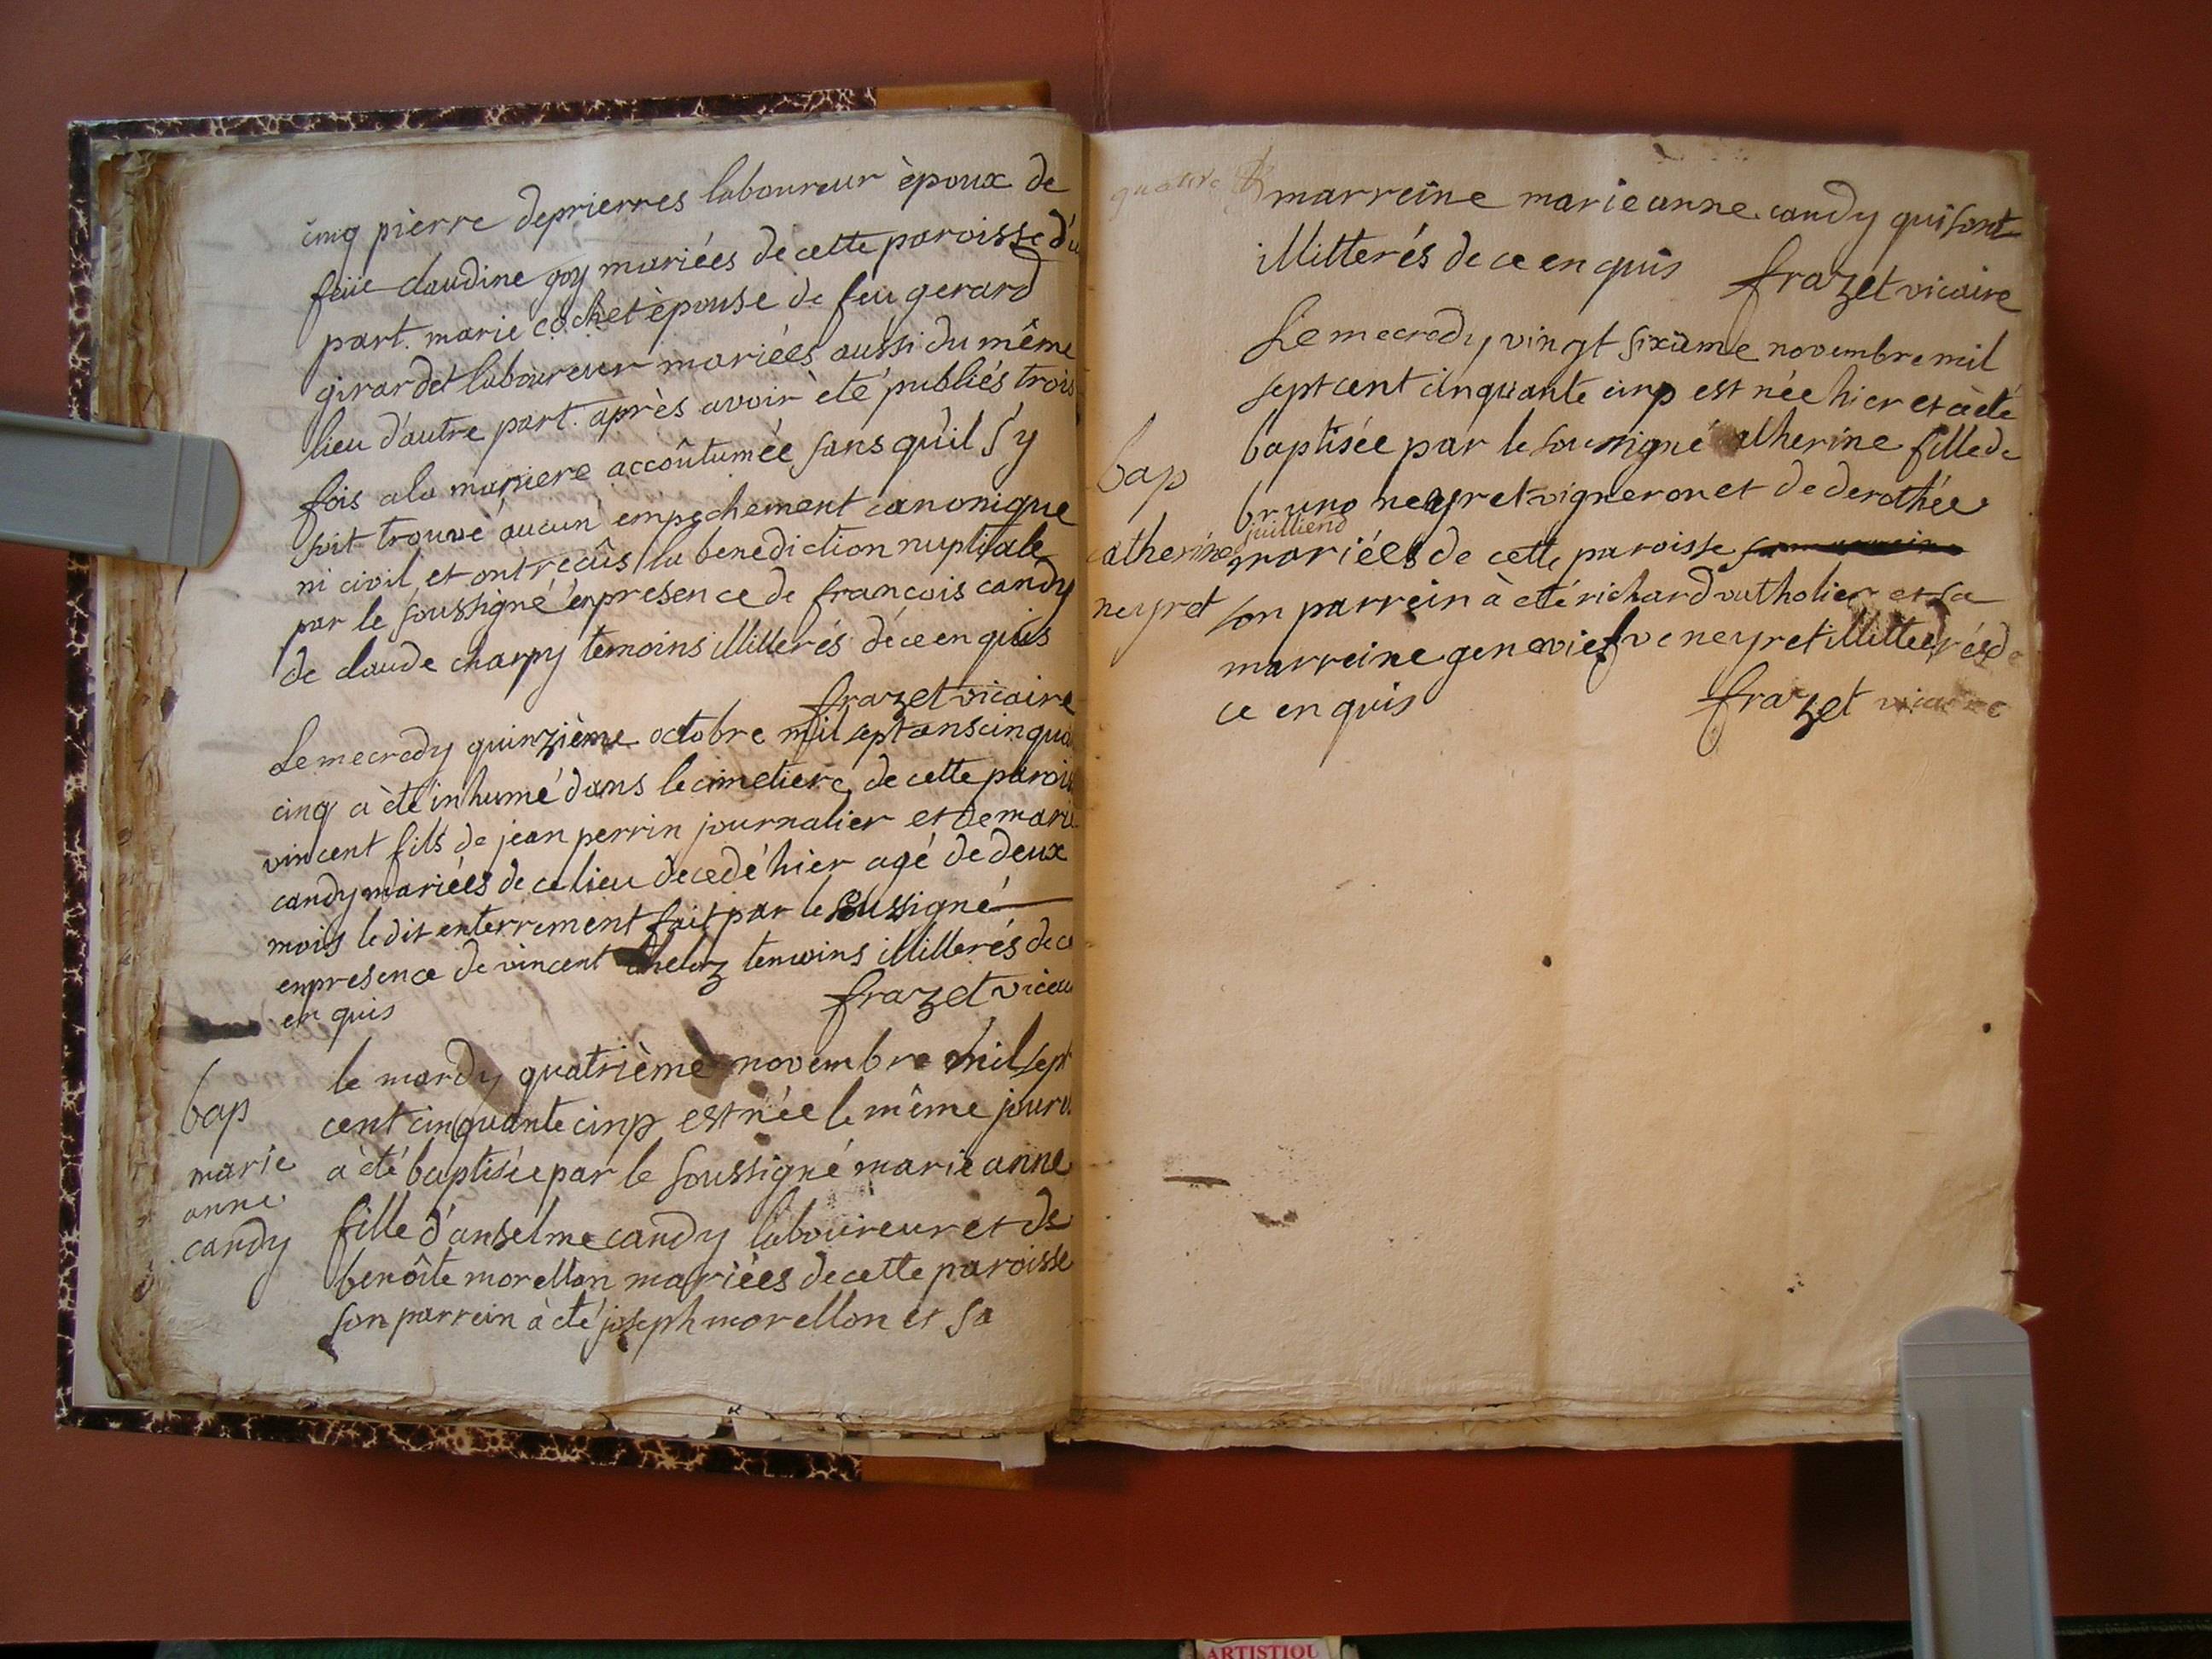 cinq pièrre deprierres laboureur èpoux de
feüe claudine goy mariées de cette paroisse d'u
part. marie cochet èpouse de feu gerard
girardet laboureur mariées aussi du même
lieu d'autre part. après avoir èté publiés trois
fois a la maniere accoûtumée sans qu'il s'y
soit trouvé aucun empechement canonique
ni civil et ont recûs la benediction nuptiale
par le soussigné en presence de francois candy
de claude charpy temoins illiterés de ce enquis
frazet vicaire
Le mecredy quinzième octobre mil sept ans cinqua
cinq a èté inhumé dans le cimetiere de cette parois
vincent fils de jean perrin journalier et de marie
candy mariées de ce lieu decedé hier agé de deux
mois le dit enterrement fait par le sussigné
en presence de vincent temoins illiterés de ce
en quis
frazet vicai
bap
marie
anne
candy
le mardy quatrième novembre mil sept
cent cinquante cinq est née le même jour et
a èté baptisée par le soussigné marie anne
fille d'anselme candy laboureur et de
benoîte morellon mariées de cette paroisse
son parrein à èté joseph morellon et sa
quatre
marreine marie anne candy qui sont
illitterés de ce en quis frazet vicaire
Le mecredy vingt sixième novembre mil
sept cent cinquante cinq est née hier et à èté
bap
catherine
neyret
baptisée par le soussigné catherine fille de
bruno neyret vigneron et de derothée
juilliend
mariées de cette paroisse
son parrein à eté richard vutholier et sa
marreine geneviefve neyret illitterés de
ce en quis frazet vicaire
ARTISTIQU